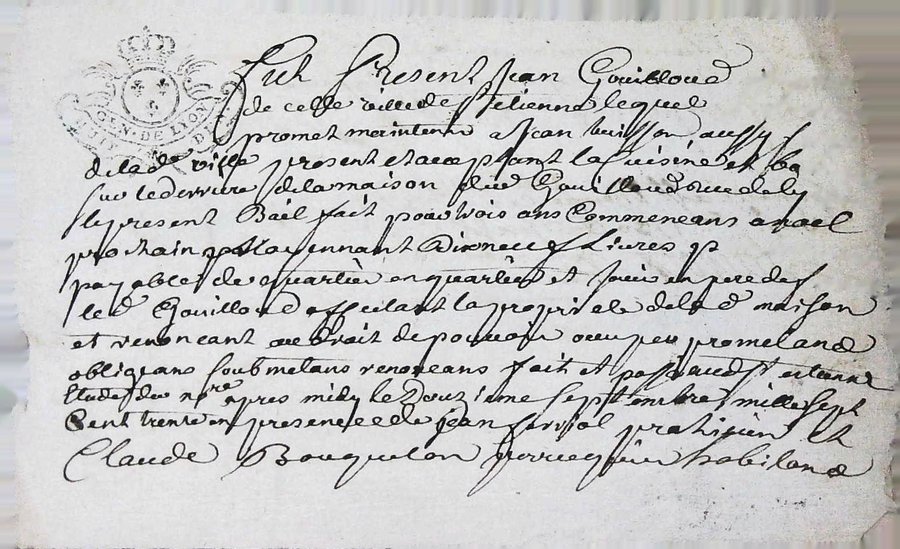 GEN. DE LYON
Fut Present Jean Gouilloud
de cette ville de St etienne lequel
promet maintenir a Jean buisson aussy
de lade ville present et acceptant la Cuisine et
sur le derriere de la maison dud Gouilloud
le present Bail fait pour trois ans Commenceans a noel
prochain moyennant Dixneuf Livres
payables de quartier en quartier et
led Gouilloud la propriete de lad maison
et renonceant au droit de pouvoir occuper promettand
obligeans soubmetans renonceans fait et passé aud St etienne
Etude du nore apres midy le Douzieme septembre mille sept
Cent trente en presence de jean praticien et
Claude Bouqueton perruquier habitand